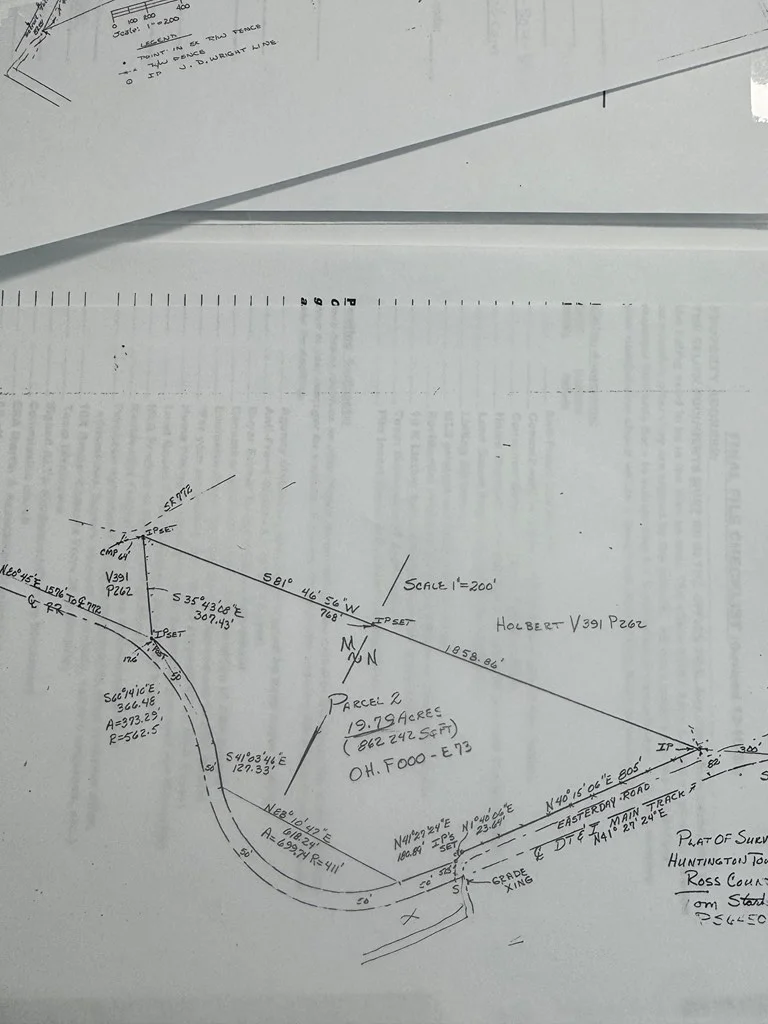 0 100 200 400
Scale: 1"=200
LEGEND
POINT IN EX R/W FENCE
R/W FENCE
IP J.D. WRIGHT LINE
SR 772
IP SET
CMP 64'
V391
P262
N80°45'E 1576' TO ℄ 772
℄ RR
S 35°43'08"E
307.43'
IP SET
17.6'
POST
50'
S60°14'10"E,
366.48
A=373.29'
R=562.5'
S81° 46' 56"W
768'
IP SET
1858.86'
SCALE 1"=200'
HOLBERT V391 P262
N
PARCEL 2
19.79 ACRES
(862 242 SQ FT)
OH. F000-E73
S41°03'46"E
127.33'
50'
N88°10'47"E
618.24'
A=699.74 R=411'
50'
50'
N41°27'24"E
180.89'
IP'S
SET
N1°40'06"E
23.64'
N40°15'06"E 805'
EASTERDAY ROAD
℄ DT & I MAIN TRACK
N41° 27' 24"E
IP
82'
300'
50'
S
GRADE
XING
PLAT OF SURV
HUNTINGTON TOW
ROSS COUNT
PS6450